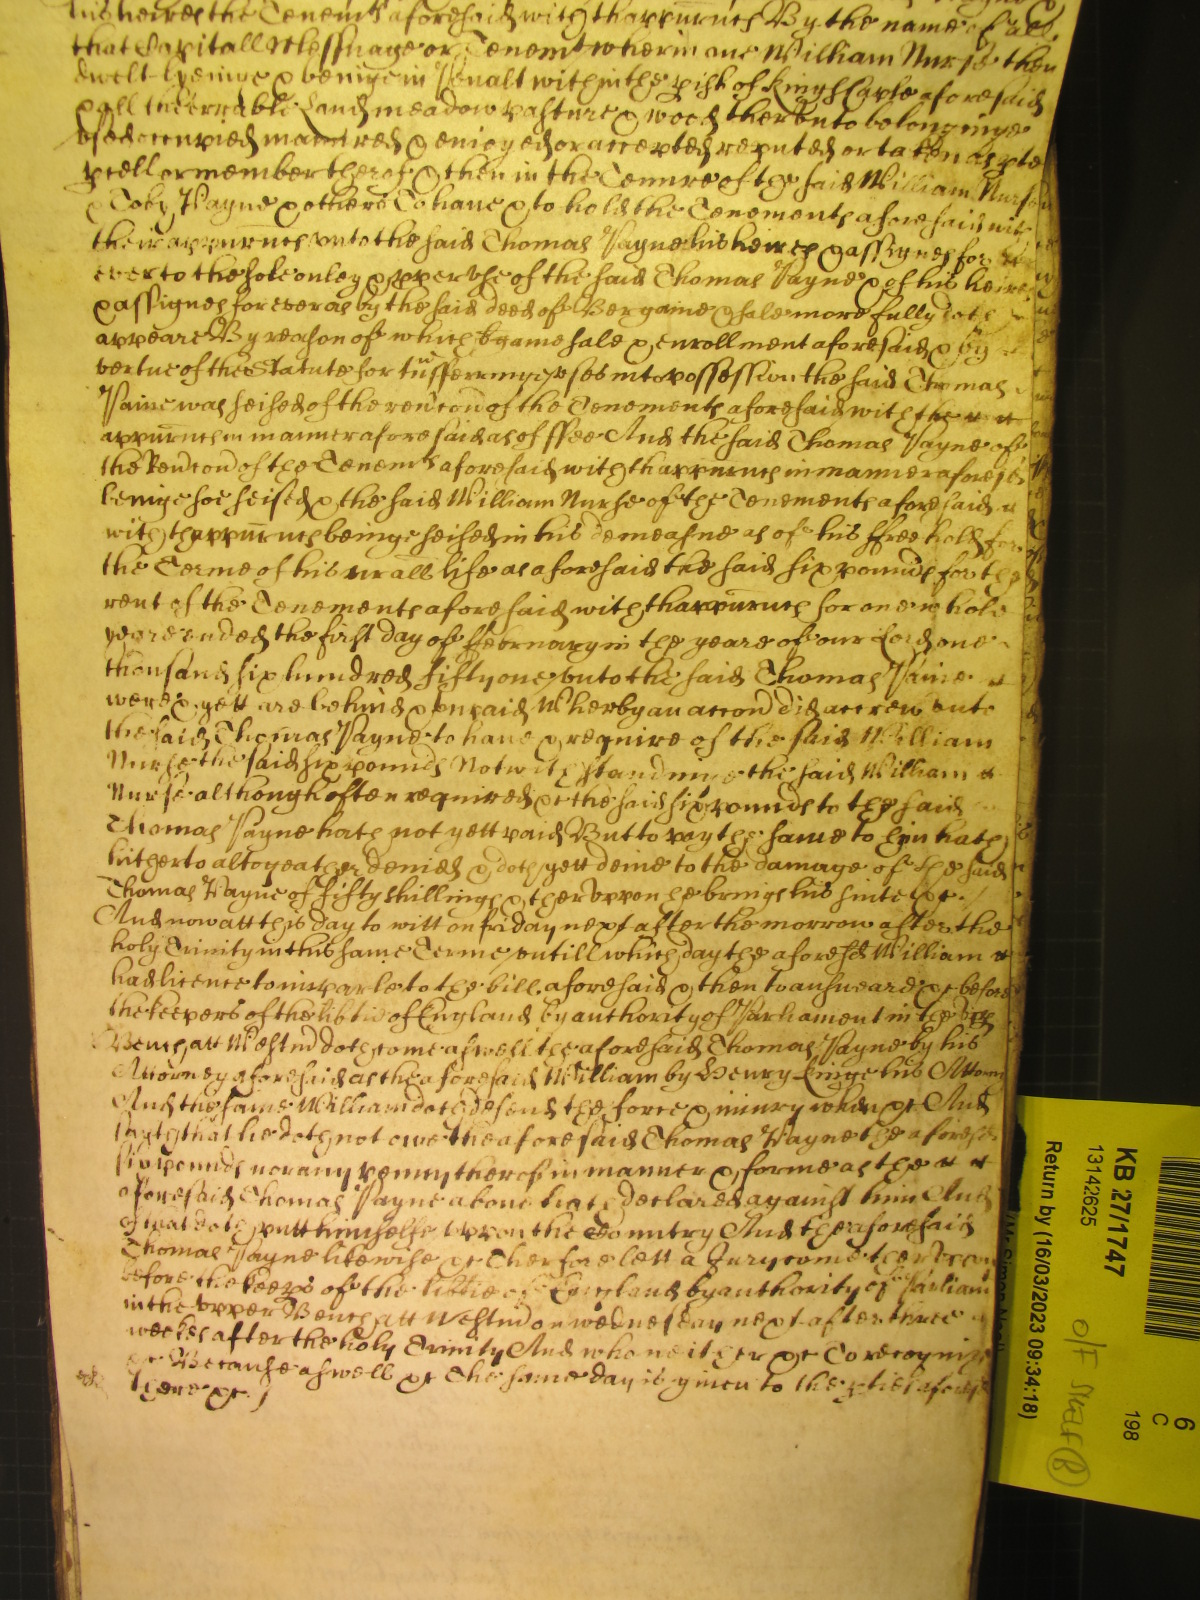 his heires the Tenemts aforesaid with thappurtnces By the name of all
that Capitall Messuage or Tenemt wherin one William Nurse then
dwelt lyeinge & beinge in Penalt within the pish of Kings Caple aforesaid
& all the errable Land meadow pasture & wood therunto belonginge
used occupied manured & enioyed or accepted reputed or taken as pte
pcell or member therof & then in the Tenure of the said William Nurse
& Toby Payne & others To haue & to hold the Tenements aforesaid with
their appurtnces unto the said Thomas Payne his heires & assignes for
ever to the sole onley & pper use of the said Thomas Payne & of his heires
& assignes for ever as by the said deed of Bargaine & sale more fully doth
appeare By reason of which bgaine sale & enrollment aforesaid & by
vertue of the Statute for tnsferringe uses into possession the said Thomas
Paine was seised of the revcon of the Tenements aforesaid with the
appurtnces in manner aforesaid as of ffee And the said Thomas Payne of
the Revcon of the Tenemts aforesaid with thappurtnces in manner aforesd
beinge soe seised & the said William Nurse of the Tenements aforesaid
with thappurtnces beinge seised in his demeasne as of his ffreehold for
the Terme of his naturall life as aforesaid the said six pounds for the
rent of the Tenements aforesaid with thappurtnces for one whole
yeare ended the first day of ffebruary in the yeare of our Lord one
thousand six hundred fifty one unto the said Thomas Paine
were & yett are behind & unpaid Wherby an accon did accrew unto
the said Thomas Payne to haue & require of the said William
Nurse the said six pounds Notwithstandinge the said William
Nurse although often required &c the said six pounds to the said
Thomas Payne hath not yett paid But to pay the same to him hath
hitherto altogeather denied & doth yett denie to the damage of the said
Thomas Payne of fifty shillings & therupon he brings his suite &c /
And now att this day to witt on friday next after the morrow after the
holy Trinity in this same Terme untill which day the aforesd William
had licence to imparle to the bill aforesaid & then to answeare &c before
the keepers of the libtie of England by authority of Parliament in the upp
Bench att Westm doth come aswell the aforesaid Thomas Payne by his
Attorney aforesaid as the aforesaid William by Henry Kinge his Attorn
And the same William doth defend the force & iniury when &c And
sayth that he doth not owe the aforesaid Thomas Payne the aforesd
six pounds nor any penny therof in manner & forme as the
aforesaid Thomas Payne aboue hath declared against him And
of that doth putt himselfe uppon the Country And the aforesaid
Thomas Payne likewise &c Therfore lett a Jury come therupon
before the keeps of the libtie of England by authority of Parliam
in the upper Bench att Westm on wednesday next after three
weekes after the holy Trinity And who neither &c To recognize
&c Because aswell &c The same day is giuen to the pties aforesd
there &c /
KB 27/1747
13142625
Return by (16/03/2023 09:34:18)
6
C
198